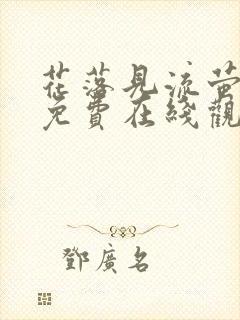 花落見流萤
免費在綫觀
鄧廣名